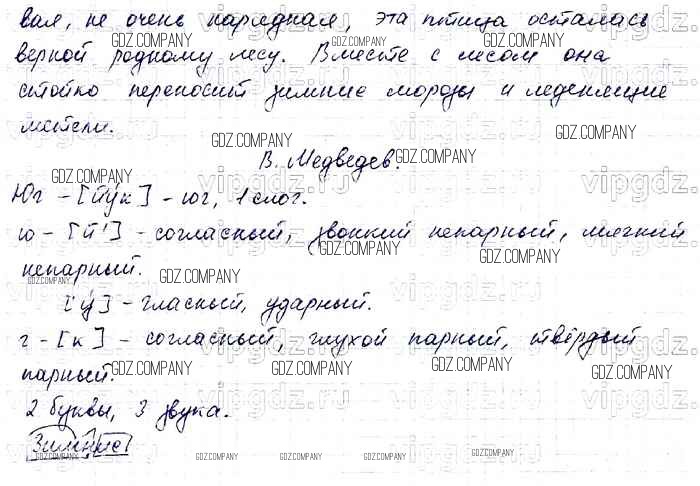 вая, не очень нарядная, эта птица осталась
верной родному лесу. Вместе с лесом она
стойко переносит зимние морозы и леденящие
метели.
В. Медведев.
Юг - [й'у́к] - юг, 1 слог.
ю - [й'] - согласный, звонкий непарный, мягкий
непарный.
[у́] - гласный, ударный.
г - [к] - согласный, глухой парный, твёрдый
парный.
2 буквы, 3 звука.
Зимние
GDZ.COMPANY
vipgdz.ru